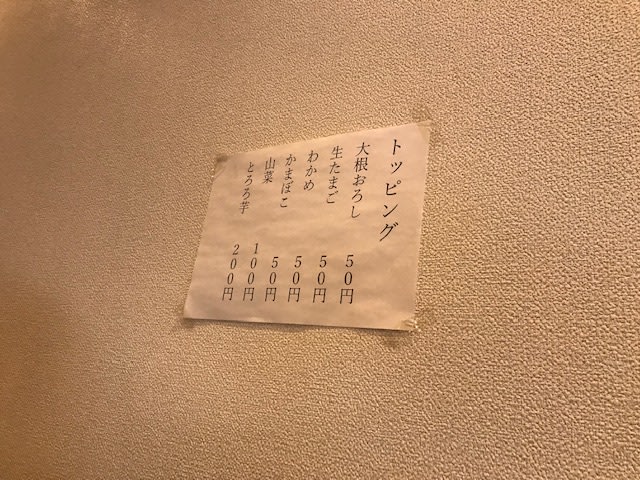 トッピング
大根おろし 50円
生たまご 50円
わかめ 50円
かまぼこ 50円
山菜 100円
とろろ芋 200円